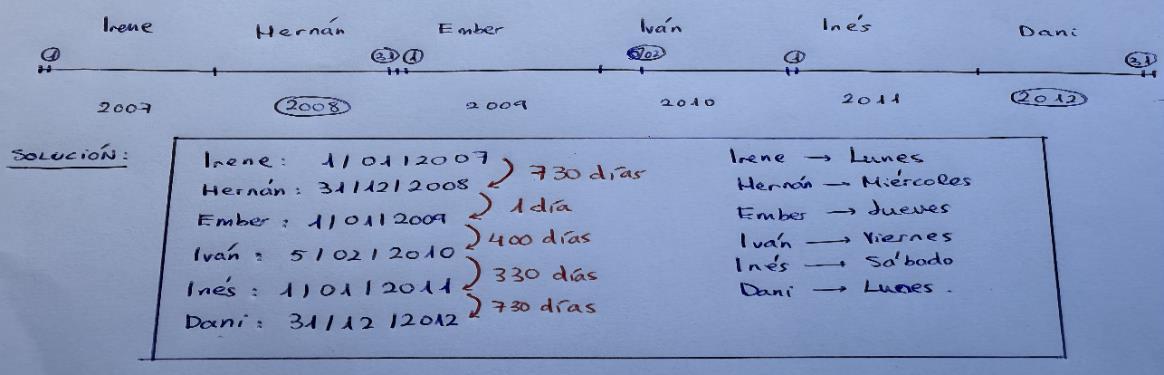 Irene Hernán Ember Iván Inés Dani
1 31 1 5/02 1 31
2007 2008 2009 2010 2011 2012
SOLUCIÓN:
Irene: 1/01/2007
730 días
Hernán: 31/12/2008
1 día
Ember: 1/01/2009
400 días
Iván: 5/02/2010
330 días
Inés: 1/01/2011
730 días
Dani: 31/12/2012
Irene → Lunes
Hernán → Miércoles
Ember → Jueves
Iván → Viernes
Inés → Sábado
Dani → Lunes.